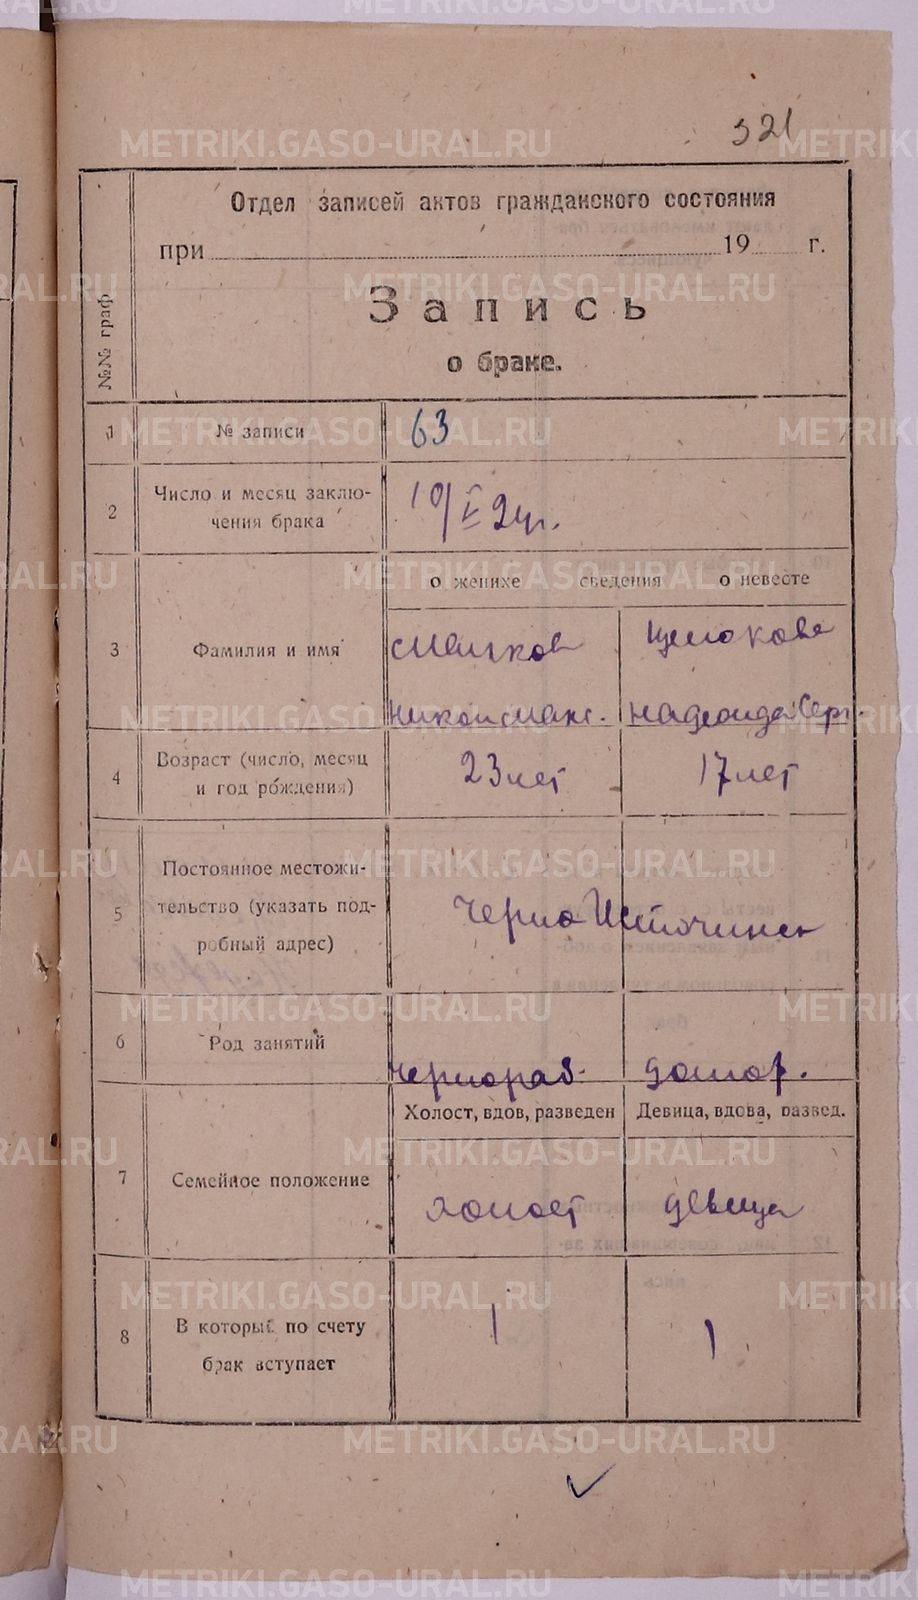 321
Отдел записей актов гражданского состояния
при 19 г.
Запись
о браке.
№№ граф
1 № записи 63
2 Число и месяц заклю-
чения брака 10/V 24г.
о женихе сведения о невесте
3 Фамилия и имя
Никон Макс. Надежда Серг.
4 Возраст (число, месяц
и год рождения) 23 лет 17 лет
5 Постоянное местожи-
тельство (указать под-
робный адрес) Черно Источинск
6 Род занятий
чернораб. домор.
Холост, вдов, разведен Девица, вдова, развед.
7 Семейное положение холост девица
8 В который по счету
брак вступает 1 1
METRIKI.GASO-URAL.RU